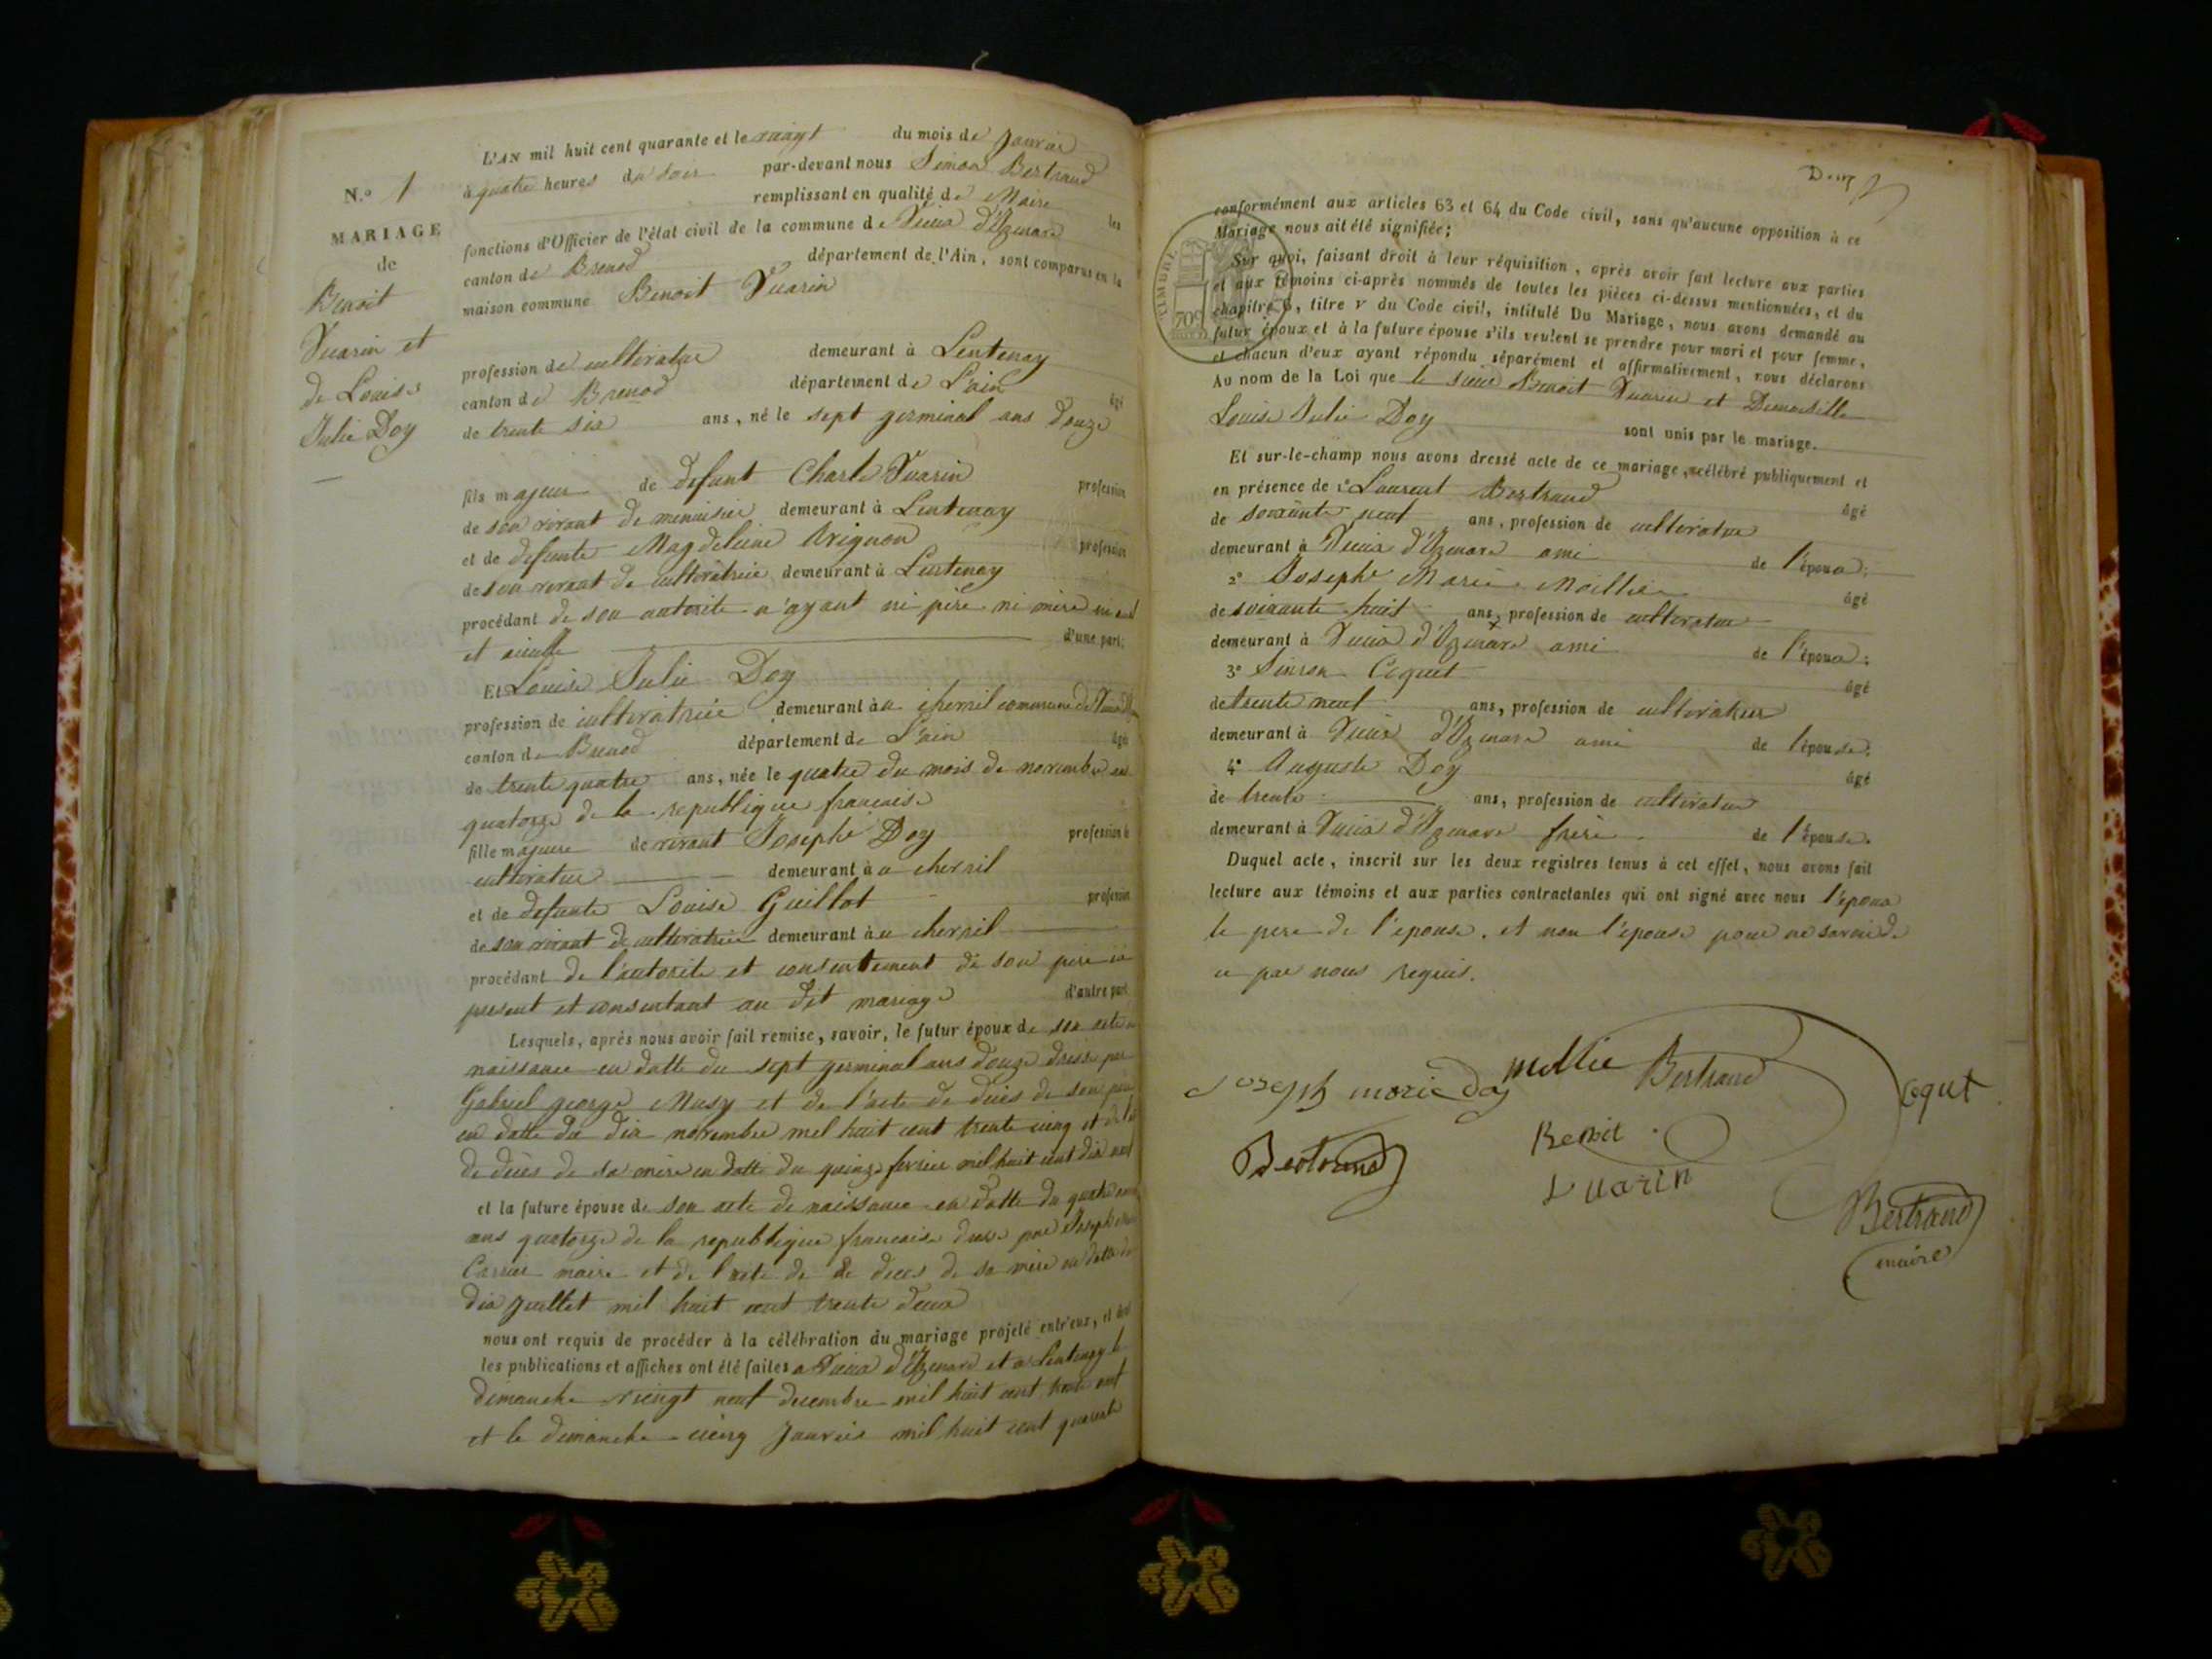 N.o 1
MARIAGE
de
Benoit
Vuarin et
de Louise
Julie Doy
L'AN mil huit cent quarante et le vingt du mois de Janvier
à quatre heures du soir par-devant nous Simon Bertrand
remplissant en qualité de Maire les
fonctions d'Officier de l'état civil de la commune de Vieux d'Izenave
canton de Brenod département de l'Ain, sont comparus en la
maison commune Benoit Vuarin
profession de cultivateur demeurant à Lentenay
canton de Brenod département de L'ain âgé
de trente six ans, né le sept germinal ans douze
fils majeur de defunt Charle Vuarin profession
de son vivant de menuisier demeurant à Lentenay
et de defunte Magdeleine Avignon profession
de son vivant de cultivatrice demeurant à Lentenay
procédant de son autorite n'ayant ni père ni mère ni aieul
et aieulle d'une part;
Et Louise Julie Doy
profession de cultivatrice demeurant à a chevril commune de
canton de Brenod département de L'ain âgé
de trente quatre ans, née le quatre du mois de novembre an
quatorze de la republique francaise
fille majeure de vivant Joseph Doy profession de
cultivateur demeurant à a chevril
et de defunte Louise Guillot profession
de son vivant de cultivatrice demeurant à a chevril
procédant de l'autorite et consentement de son père ici
present et consentant au dit mariage d'autre part
Lesquels, après nous avoir fait remise, savoir, le futur époux de son acte de
naissance en datte du sept germinal ans douze dressé par
Gabriel george Musy et de l'acte de décès de son père
en datte du dix novembre mil huit cent trente cinq et de
de décès de sa mère en datte du quinze fevrier mil huit cent dix neuf
et la future épouse de son acte de naissance en datte du quatre
ans quatorze de la republique francaise dressé par Joseph
Carrier maire et de l'acte de de deces de sa mère en datte du
dix juillet mil huit cent trente deux
nous ont requis de procéder à la célébration du mariage projeté entr'eux, et dont
les publications et affiches ont été faites a Vieux d'Izenave et a Lentenay le
dimanche vingt neuf decembre mil huit cent trente neuf
et le dimanche cinq Janvier mil huit cent quarante
Deux
conformément aux articles 63 et 64 du Code civil, sans qu'aucune opposition à ce
Mariage nous ait été signifiée;
TIMBRE
70c
Sur quoi, faisant droit à leur réquisition, après avoir fait lecture aux parties
et aux témoins ci-après nommés de toutes les pièces ci-dessus mentionnées, et du
chapitre 6, titre v du Code civil, intitulé Du Mariage, nous avons demandé au
futur époux et à la future épouse s'ils veulent se prendre pour mari et pour femme,
et chacun d'eux ayant répondu séparément et affirmativement, nous déclarons
Au nom de la Loi que le sieur Benoit Vuarin et Demoiselle
Louise Julie Doy sont unis par le mariage.
Et sur-le-champ nous avons dressé acte de ce mariage, célébré publiquement et
en présence de 1o Laurent Bertrand âgé
de soixante neuf ans, profession de cultivateur
demeurant à Vieux d'Izenave ami de l'époux;
2o Joseph Marie Moillie âgé
de soixante huit ans, profession de cultivateur
demeurant à Vieux d'Izenave ami de l'époux;
3o Simon Coquet âgé
de trente neuf ans, profession de cultivateur
demeurant à Vieux d'Izenave ami de l'épouse;
4o Auguste Doy âgé
de trente ans, profession de cultivateur
demeurant à Vieux d'Izenave frère de l'épouse.
Duquel acte, inscrit sur les deux registres tenus à cet effet, nous avons fait
lecture aux témoins et aux parties contractantes qui ont signé avec nous l'époux
le pere de l'épouse. et non l'épouse pour ne savoir de
ce par nous requis.
Joseph marie doy mollie Bertrand Coqut
Bertrand Benoit
Vuarin
Bertrand
maire